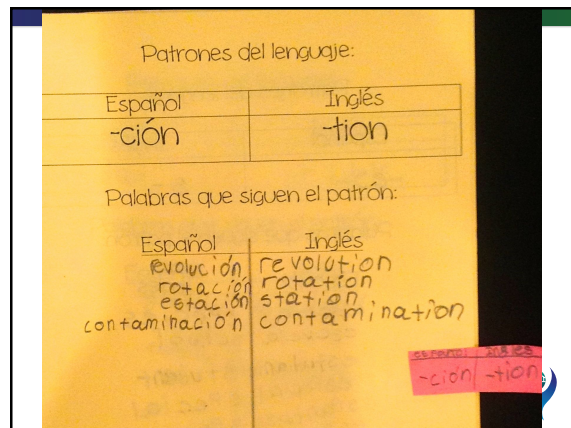 Patrones del lenguaje:
Español Inglés
-ción -tion
Palabras que siguen el patrón:
Español Inglés
revolución revolution
rotación rotation
estación station
contaminación contamination
español Inglés
-ción -tion